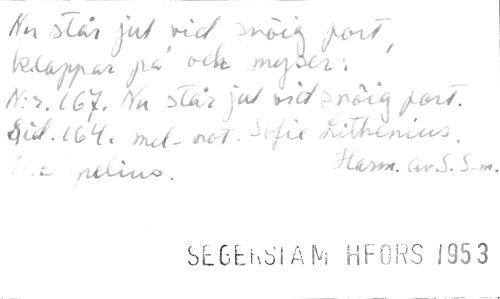 Nu står jul vid snöig port,
klappar på och myser:
N:r. 167. Nu står jul vid snöig port.
Sid. 164. mel-not. Sofie Lithenius.
Harm. av S. S-m.
SEGERSTAM HFORS 1953